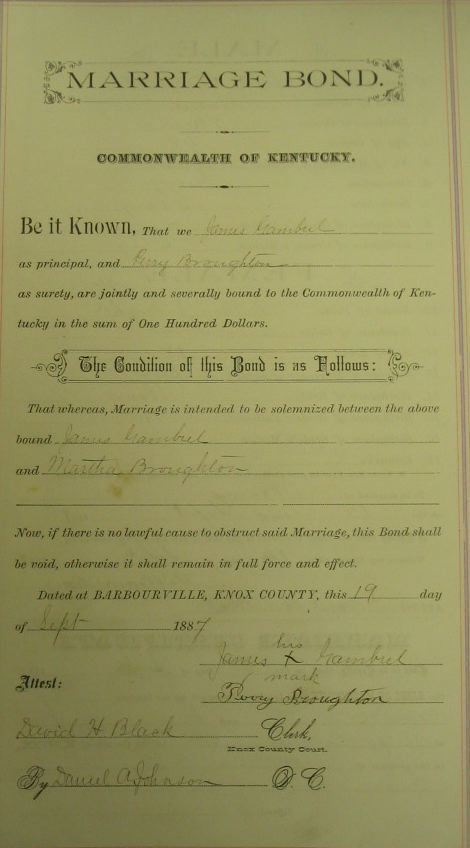 MARRIAGE BOND.
COMMONWEALTH OF KENTUCKY.
Be it Known, That we James Gambrel
as principal, and Perry Broughton
as surety, are jointly and severally bound to the Commonwealth of Ken-
tucky in the sum of One Hundred Dollars.
The Condition of this Bond is as Follows:
That whereas, Marriage is intended to be solemnized between the above
bound James Gambrel
and Martha Broughton
Now, if there is no lawful cause to obstruct said Marriage, this Bond shall
be void, otherwise it shall remain in full force and effect.
Dated at BARBOURVILLE, KNOX COUNTY, this 19 day
of Sept 1887
his
James X Gambrel
mark
Attest: Perry Broughton
David H. Black Clerk,
Knox County Court.
By Daniel A. Johnson D. C.